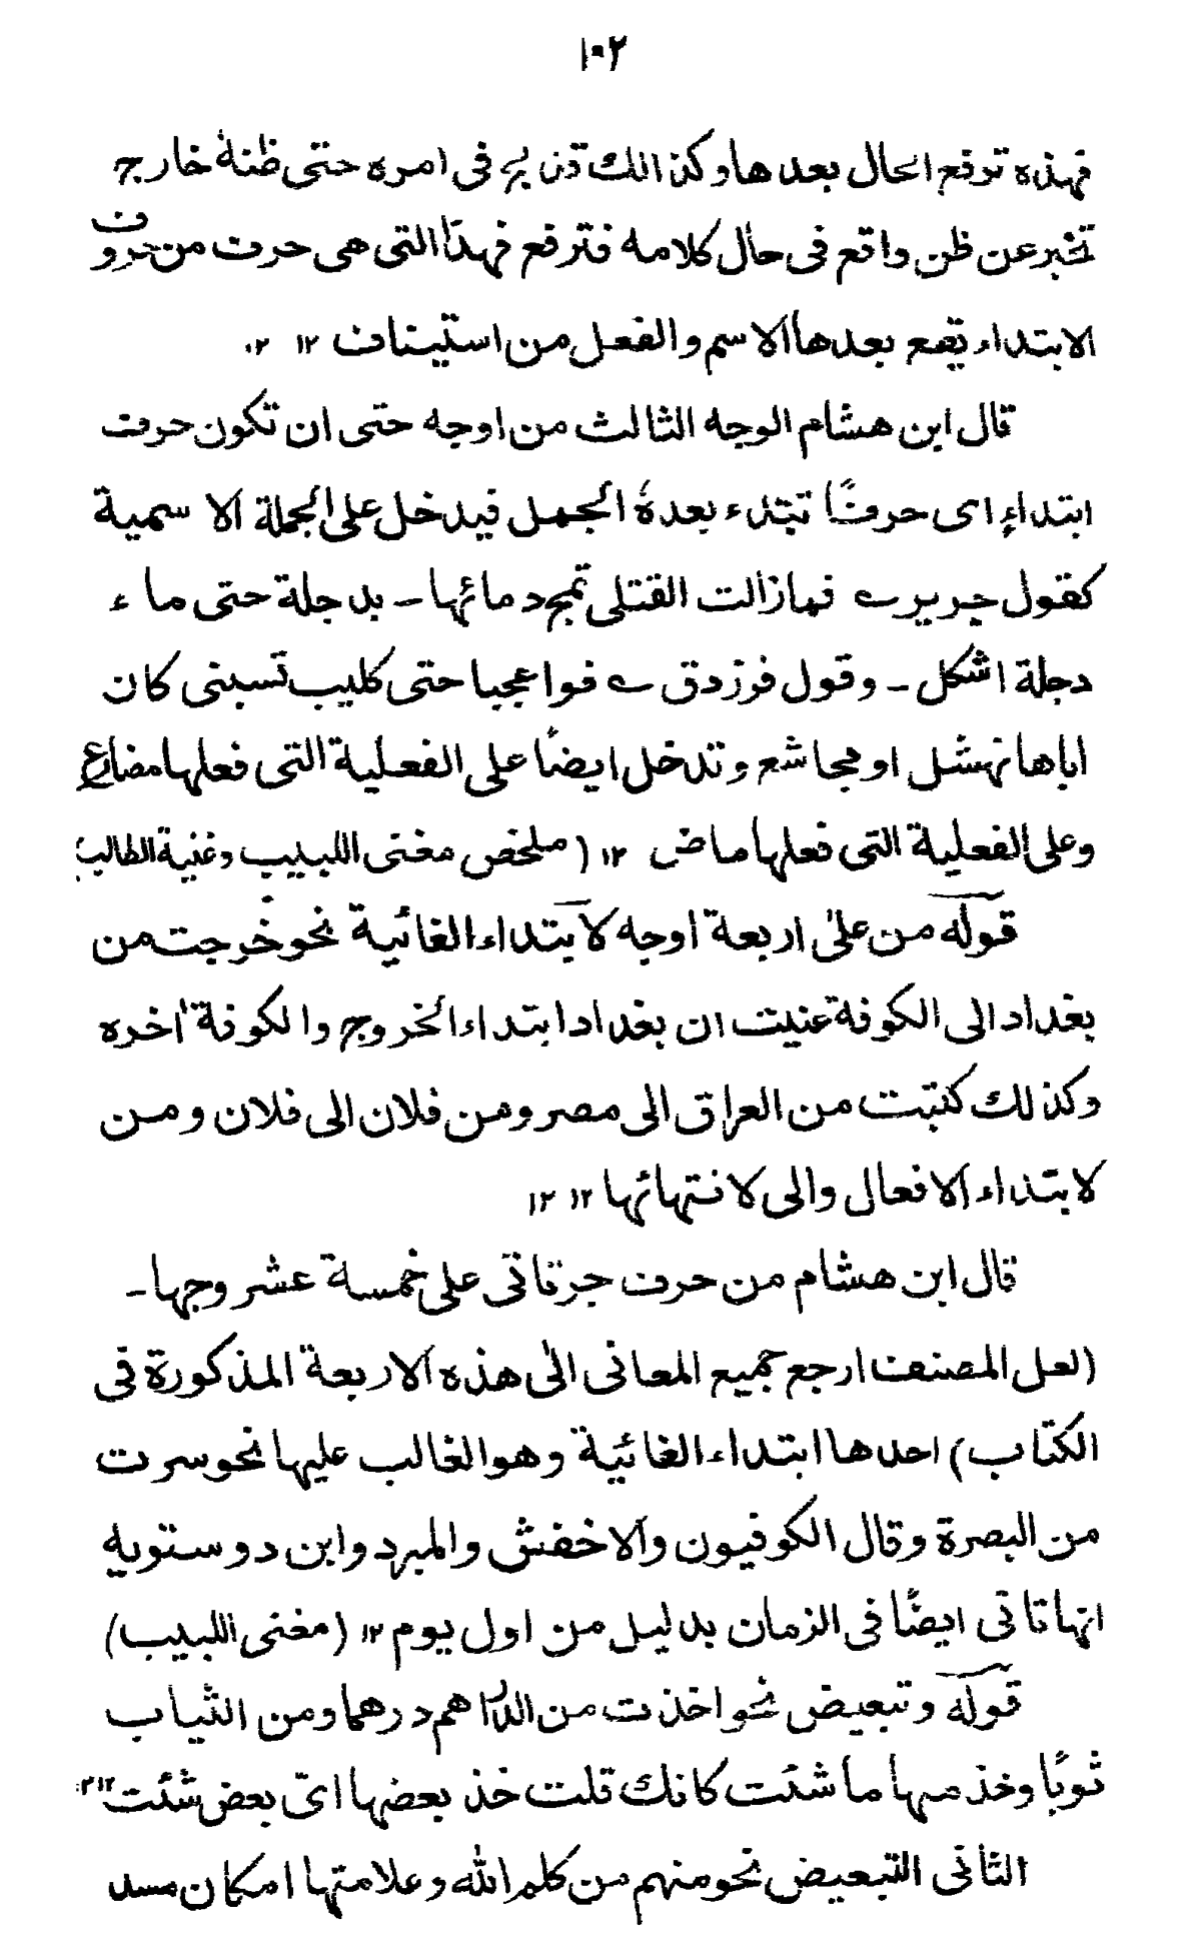 ١٠٢
فهذه ترفع الحال بعدها وكذالك في امره حتى ظنهٔ خارج
تخبر عن ظن واقع في حال كلامه فترفع فهذا التى هى حرف من حروف
الابتداء يقع بعدها الاسم والفعل من استيناف ١٢ ١٢
قال ابن هشام الوجه الثالث من اوجه حتى ان تكون حرف
ابتداءٍ اى حرفًا تبتدء بعدهٗ الجمل فيدخل على الجملة الا سمية
كقول جرير ے فما زالت القتلى تمج دمائها ـ بد جلة حتى ما ء
دجلة اشكل ـ وقول فرزدق ے فوا عجبا حتى كليب تسبنى كان
اباها نهشل او مجاشع وتدخل ايضًا على الفعلية التى فعلها مضارع
وعلى الفعلية التى فعلها ماض ١٢ (ملخص مغنى اللبيب وغنية الطالب)
قوله من على اربعة اوجه لابتداء الغائية نحو خرجت من
بغداد الى الكوفة عنيت ان بغداد ابتداء الخروج والكوفة اخره
وكذلك كتبت من العراق الى مصر ومن فلان الى فلان ومن
لابتداء الافعال والى لانتهائها ١٢ ١٢
قال ابن هشام من حرف جر تاتى على خمسة عشر وجها ـ
(لعل المصنف ارجع جميع المعانى الى هذه الاربعة المذكورة فى
الكتاب) احدها ابتداء الغائية وهو الغالب عليها نحو سرت
من البصرة وقال الكوفيون والاخفش والمبرد وابن دوستويه
انها تاتى ايضًا فى الزمان بدليل من اول يوم ١٢ (مغنى اللبيب)
قوله وتبعيض نحو اخذت من الدراهم درهما ومن الثياب
ثوبًا وخذ منها ما شئت كانك قلت خذ بعضها اىّ بعض شئت ١٢ ١٢
الثانى التبعيض نحو منهم من كلم الله وعلامتها امكان مسد